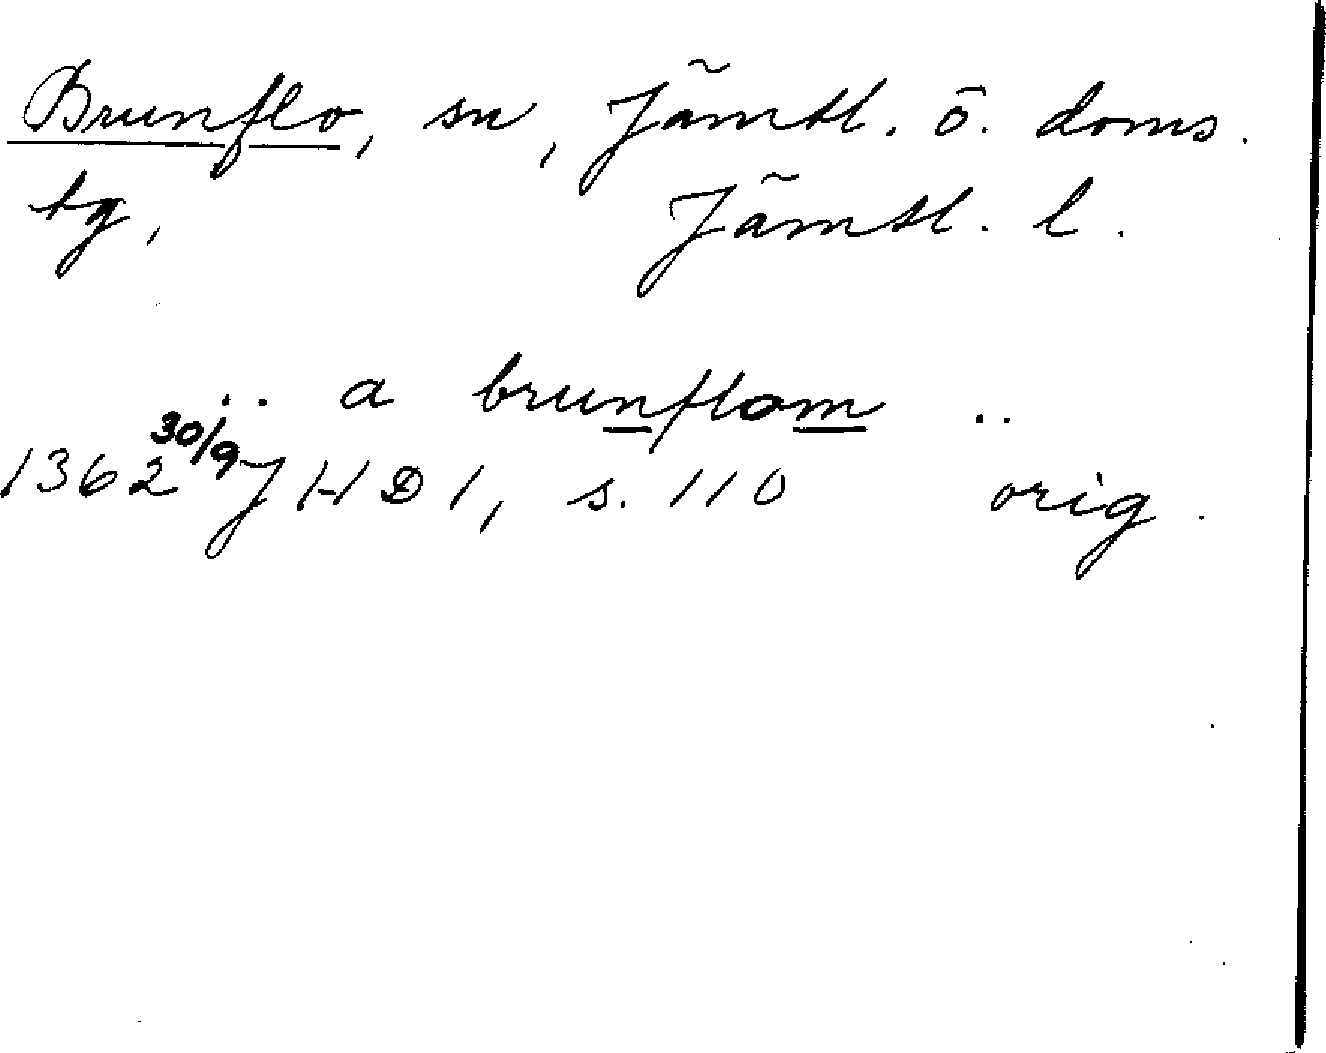 Brunflo, sn, Jämtl. ö. doms.
tg, Jämtl. l.
.. a brunflom ..
1362 30/9 JHD 1, s. 110 orig.